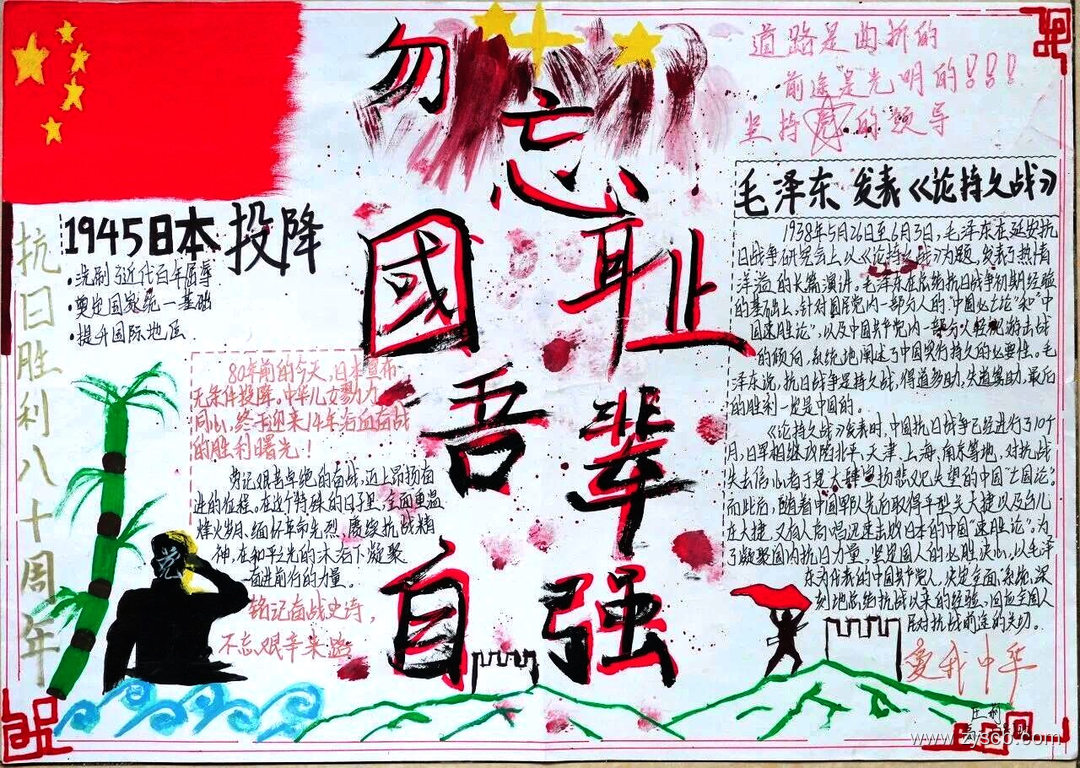 抗日胜利八十周年
1945日本投降
·洗刷了近代百年屈辱
·奠定国家统一基础
·提升国际地位
80年前的今天,日本宣布
无条件投降。中华儿女勠力
同心,终于迎来14年浴血奋战
的胜利曙光!
勇记艰苦卓绝的奋战,迈上昂扬奋
进的征程。在这个特殊的日子里,全面重温
烽火岁月、缅怀革命先烈、赓续抗战精
神,在和平光的沐浴下凝聚
奋进前行的力量。
铭记奋战史诗,
不忘艰辛来路
勿忘
國耻
吾辈
自强
道路是曲折的
前途是光明的!!!
坚持党的领导
毛泽东发表《论持久战》
1938年5月26日至6月3日,毛泽东在延安抗
日战争研究会上以《论持久战》为题,发表了热情
洋溢的长篇演讲。毛泽东在总结抗日战争初期经验
的基础上,针对国民党内一部分人的"中国必亡论"和"中
国速胜论",以及中国共产党内一部分人轻视游击战
的倾向,系统地阐述了中国实行持久的必要性。毛
泽东说,抗日战争是持久战,得道多助,失道寡助,最后
的胜利一定是中国的。
《论持久战》发表时,中国抗日战争已经进行了10个
月,日军相继攻陷北平、天津、上海、南京等地,对抗战
失去信心者于是大肆宣扬悲观失望的中国"亡国论"。
而此后,随着中国军队先后取得平型关大捷以及台儿
庄大捷,又有人高唱迅速击败日本的中国"速胜论"。为
了凝聚国内抗日力量,坚定国人的必胜决心,以毛泽
东为代表的中国共产党人,决定全面、系统、深
刻地总结抗战以来的经验,回应全国人
民对抗战前途的关切。
爱我中华
www.zyscb.com